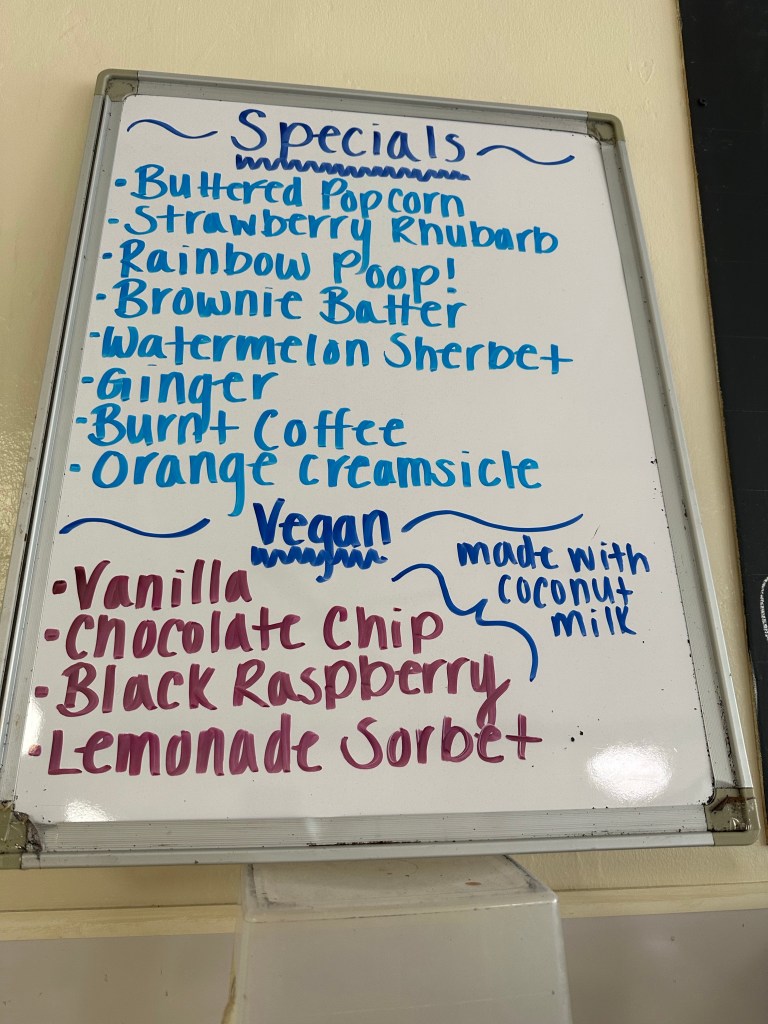 ~ Specials ~
· Buttered Popcorn
· Strawberry Rhubarb
· Rainbow Poop!
· Brownie Batter
· Watermelon Sherbet
· Ginger
· Burnt Coffee
· Orange Creamsicle
~ Vegan ~
made with
coconut
milk
· Vanilla
· Chocolate Chip
· Black Raspberry
· Lemonade Sorbet